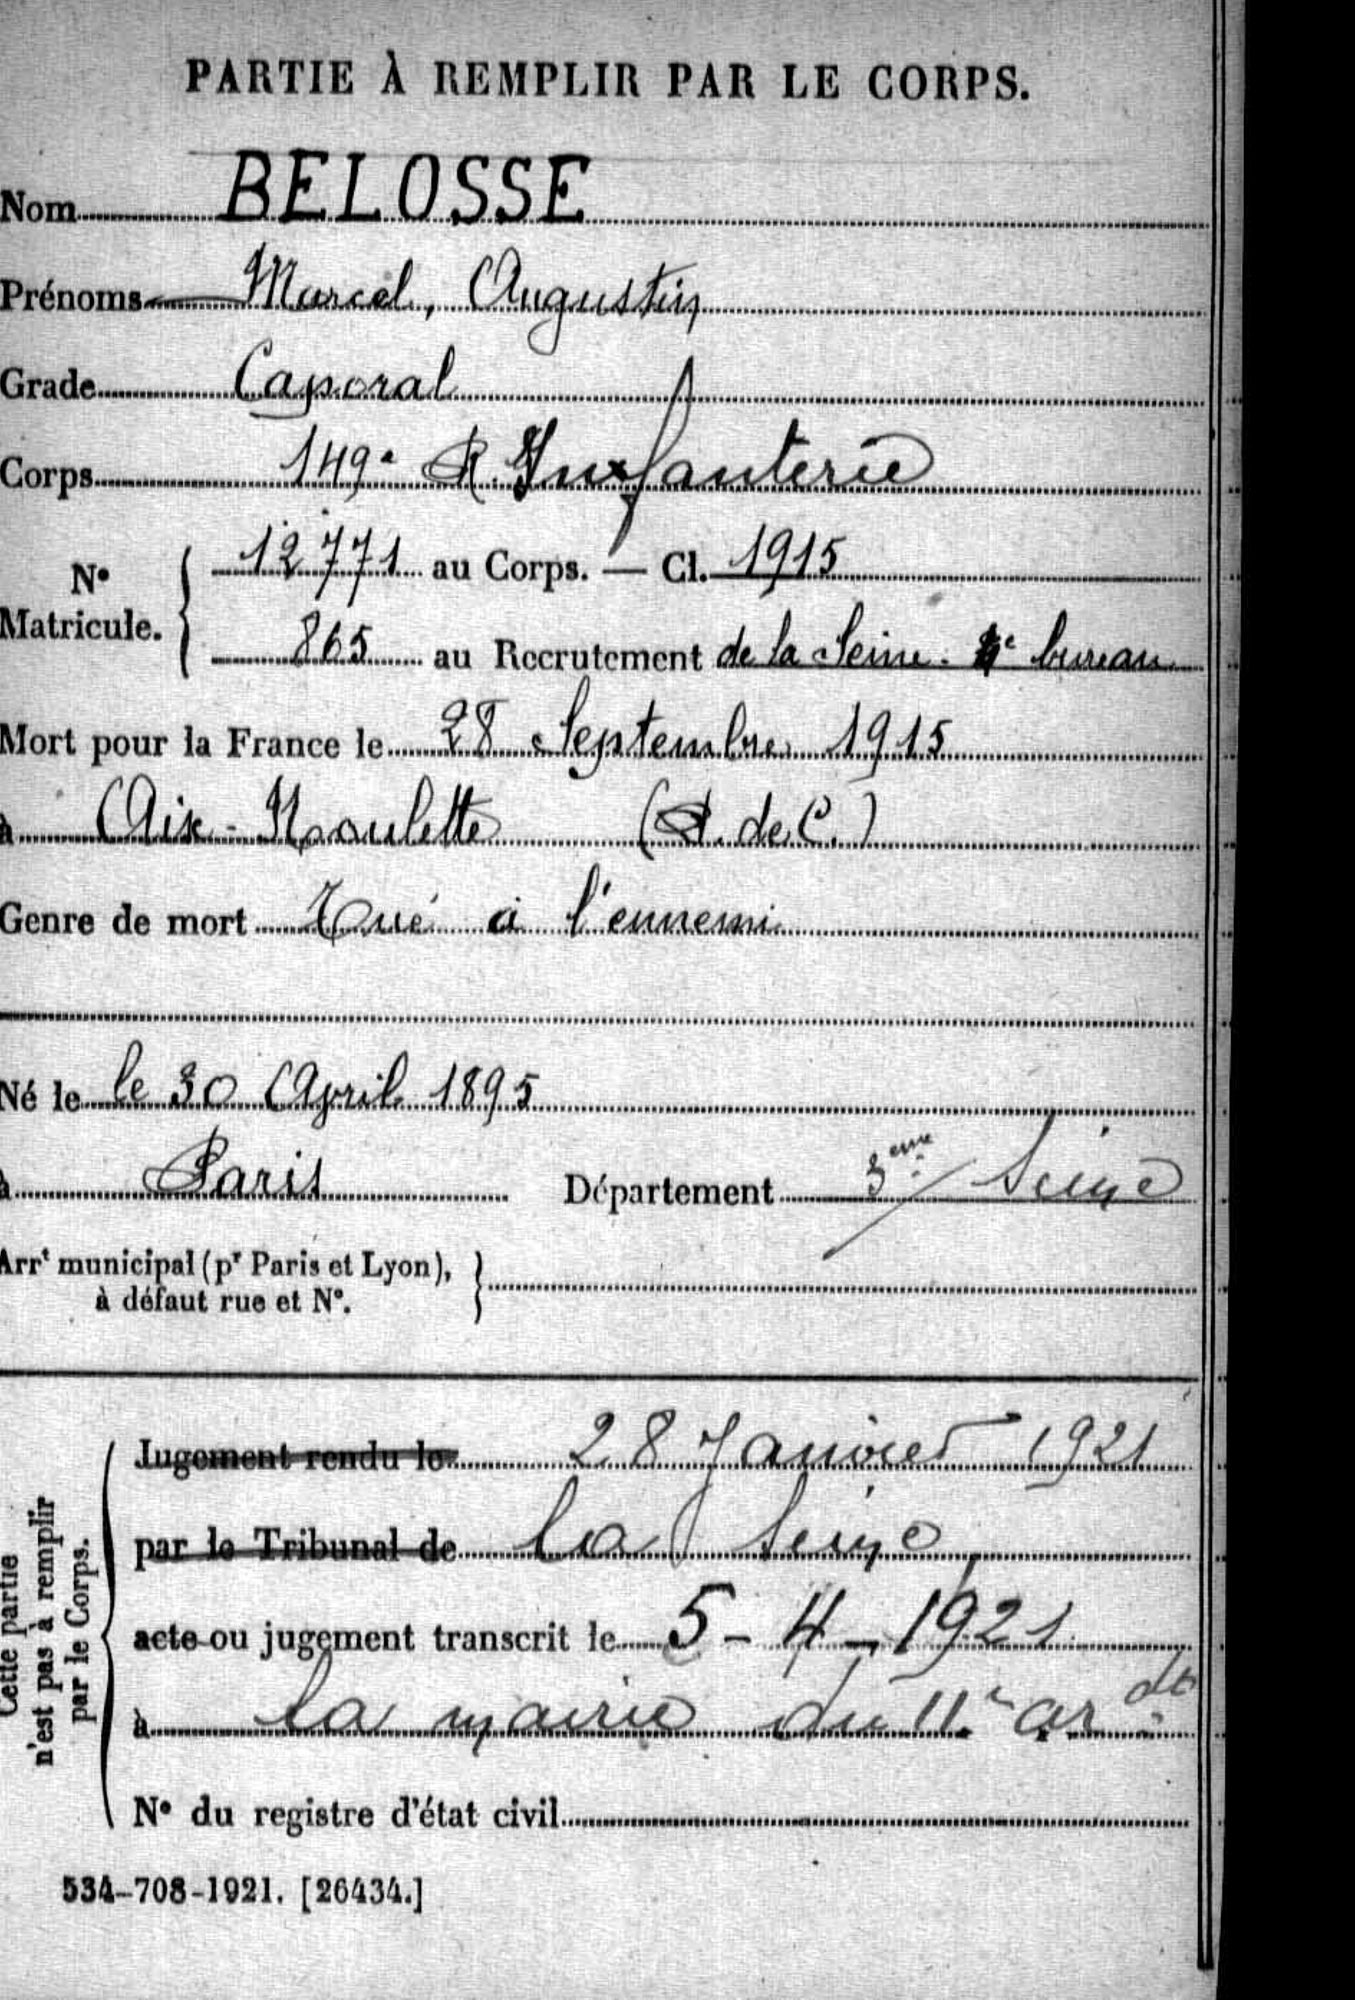 PARTIE À REMPLIR PAR LE CORPS.
Nom BELOSSE
Prénoms Marcel, Augustin
Grade Caporal
Corps 149e R. Infanterie
N° Matricule. 12771 au Corps. — Cl. 1915
865 au Recrutement de la Seine. bureau
Mort pour la France le 28 Septembre 1915
à Aix-Noulette (P. de C.)
Genre de mort Tué à l'ennemi
Né le le 30 Avril 1895
à Paris Département 3eme / Seine
Arrt municipal (pr Paris et Lyon), à défaut rue et N°.
Cette partie n'est pas à remplir par le Corps.
Jugement rendu le 28 Janvier 1921
par le Tribunal de la Seine
acte ou jugement transcrit le 5-4-1921
à la mairie du 11e ardt
N° du registre d'état civil
534-708-1921. [26434.]